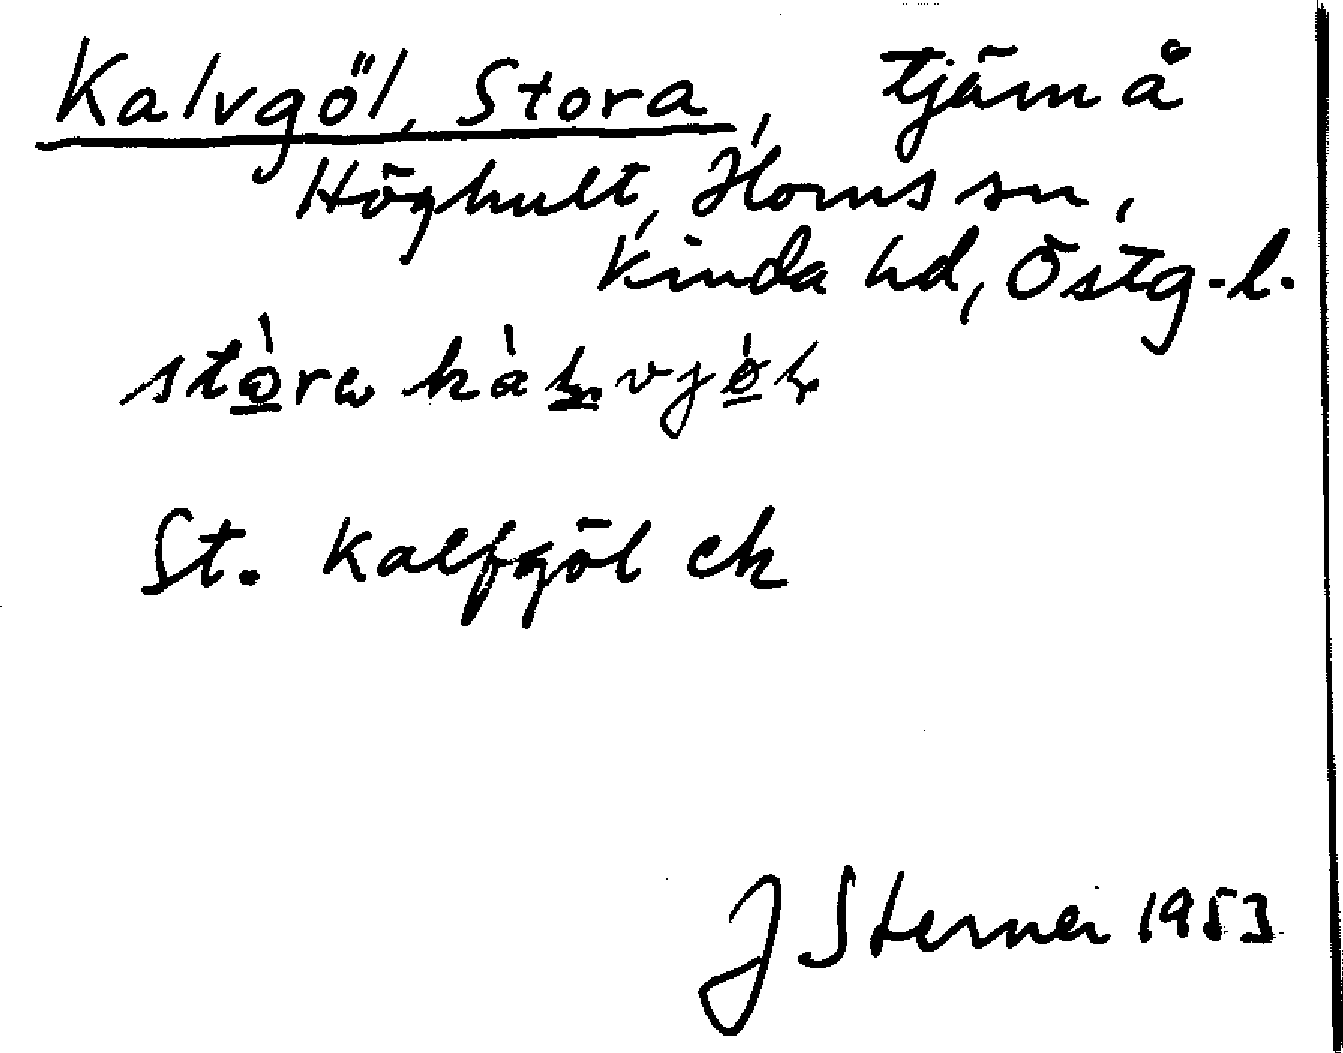 Kalvgöl, Stora, tjärn å
Höghult, Horns sn,
Kinda hd, Östg.l.
St. Kalfgöl ek
J Sterner 1953